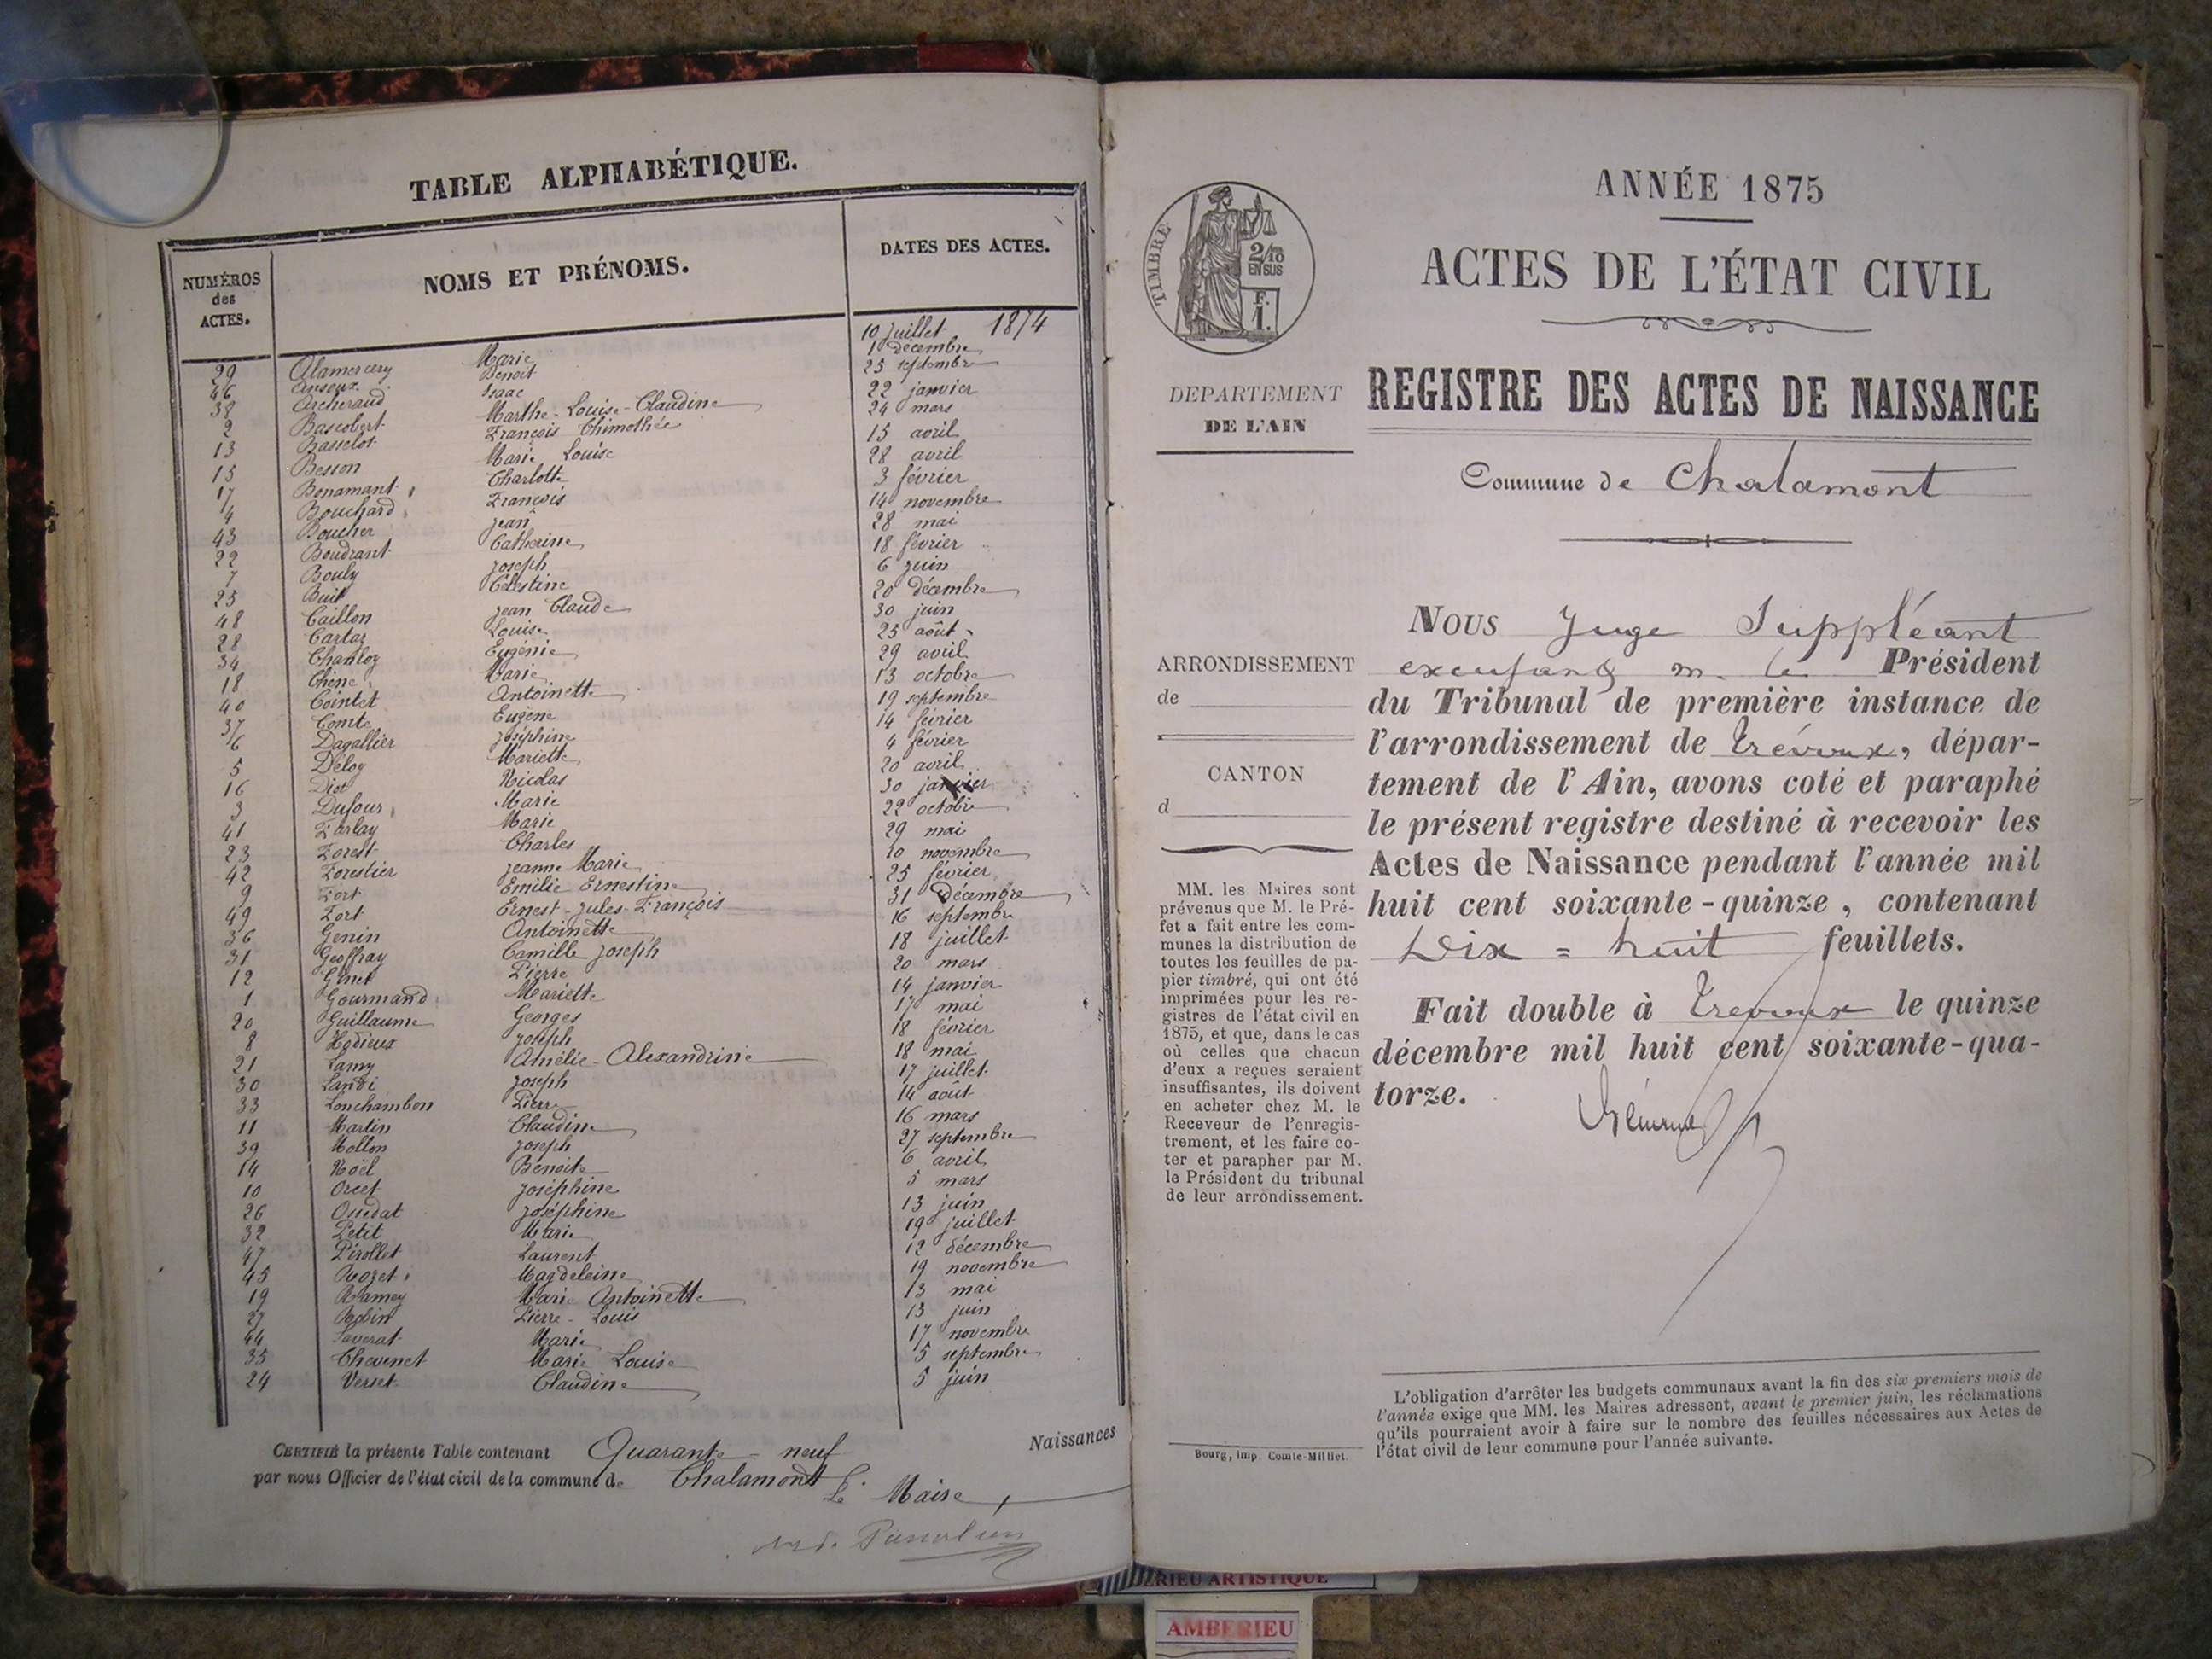 TABLE ALPHABÉTIQUE.
NUMÉROS des ACTES. NOMS ET PRÉNOMS. DATES DES ACTES.
29 Alamercery Marie 10 juillet 1874
46 Anseux Benoit 1 décembre
38 Archeraud Isaac 25 septembre
2 Bascobert Marthe-Louise-Claudine 22 janvier
13 Basselot François Thimothée 24 mars
15 Besson Marie Louise 15 avril
17 Bonamant Charlotte 28 avril
4 Bouchard François 3 février
43 Boucher Jean 14 novembre
22 Boudrant Catherine 28 mai
7 Bouly Joseph 18 février
25 Buit Célestine 6 juin
48 Caillon Jean Claude 20 décembre
28 Cartaz Louise 30 juin
34 Chanloz Eugénie 25 août
18 Chêne Marie 29 avril
40 Cointet Antoinette 13 octobre
37 Comte Eugène 19 septembre
6 Dagallier Joséphine 14 février
5 Deloy Mariette 4 février
16 Diot Nicolas 20 avril
3 Dufour Marie 30 janvier
41 Farlay Marie 22 octobre
23 Forest Charles 29 mai
42 Forestier Jeanne Marie 10 novembre
9 Fort Emilie Ernestine 25 février
49 Fort Ernest-Jules-François 31 Décembre
36 Genin Antoinette 16 septembre
31 Geoffray Camille Joseph 18 juillet
12 Ginet Pierre 20 mars
1 Gourmand Mariette 14 janvier
20 Guillaume Georges 17 mai
8 Hodieux Joseph 18 février
21 Lamy Amélie-Alexandrine 18 mai
30 Landi Joseph 17 juillet
33 Lonchambon Pierre 14 août
11 Martin Claudine 16 mars
39 Mollon Joseph 27 septembre
14 Noël Benoite 6 avril
10 Orcet Joséphine 5 mars
26 Ouidat Joséphine 13 juin
32 Petit Marie 19 juillet
47 Pirollet Laurent 12 décembre
45 Rozet Magdeleine 19 novembre
19 Ramey Marie Antoinette 13 mai
27 Robin Pierre-Louis 13 juin
44 Saverat Marie 17 novembre
35 Thevenet Marie Louise 5 septembre
24 Verset Claudine 5 juin
CERTIFIÉ la présente Table contenant Quarante-neuf Naissances
par nous Officier de l'état civil de la commune de Chalamont
Le Maire,
TIMBRE
2/10
EN SUS
f.
1.
DEPARTEMENT
DE L'AIN
ANNÉE 1875
ACTES DE L'ÉTAT CIVIL
REGISTRE DES ACTES DE NAISSANCE
Commune de Chalamont
ARRONDISSEMENT
de
CANTON
d
MM. les Maires sont
prévenus que M. le Pré-
fet a fait entre les com-
munes la distribution de
toutes les feuilles de pa-
pier timbré, qui ont été
imprimées pour les re-
gistres de l'état civil en
1875, et que, dans le cas
où celles que chacun
d'eux a reçues seraient
insuffisantes, ils doivent
en acheter chez M. le
Receveur de l'enregis-
trement, et les faire co-
ter et parapher par M.
le Président du tribunal
de leur arrondissement.
Nous Juge Suppléant
m. le Président
du Tribunal de première instance de
l'arrondissement de Trévoux, dépar-
tement de l'Ain, avons coté et paraphé
le présent registre destiné à recevoir les
Actes de Naissance pendant l'année mil
huit cent soixante-quinze, contenant
Dix=huit feuillets.
Fait double à Trevoux le quinze
décembre mil huit cent soixante-qua-
torze.
L'obligation d'arrêter les budgets communaux avant la fin des six premiers mois de
l'année exige que MM. les Maires adressent, avant le premier juin, les réclamations
qu'ils pourraient avoir à faire sur le nombre des feuilles nécessaires aux Actes de
l'état civil de leur commune pour l'année suivante.
Bourg, imp. Comte-Milliet.
ERIEU ARTISTIQUE
AMBERIEU